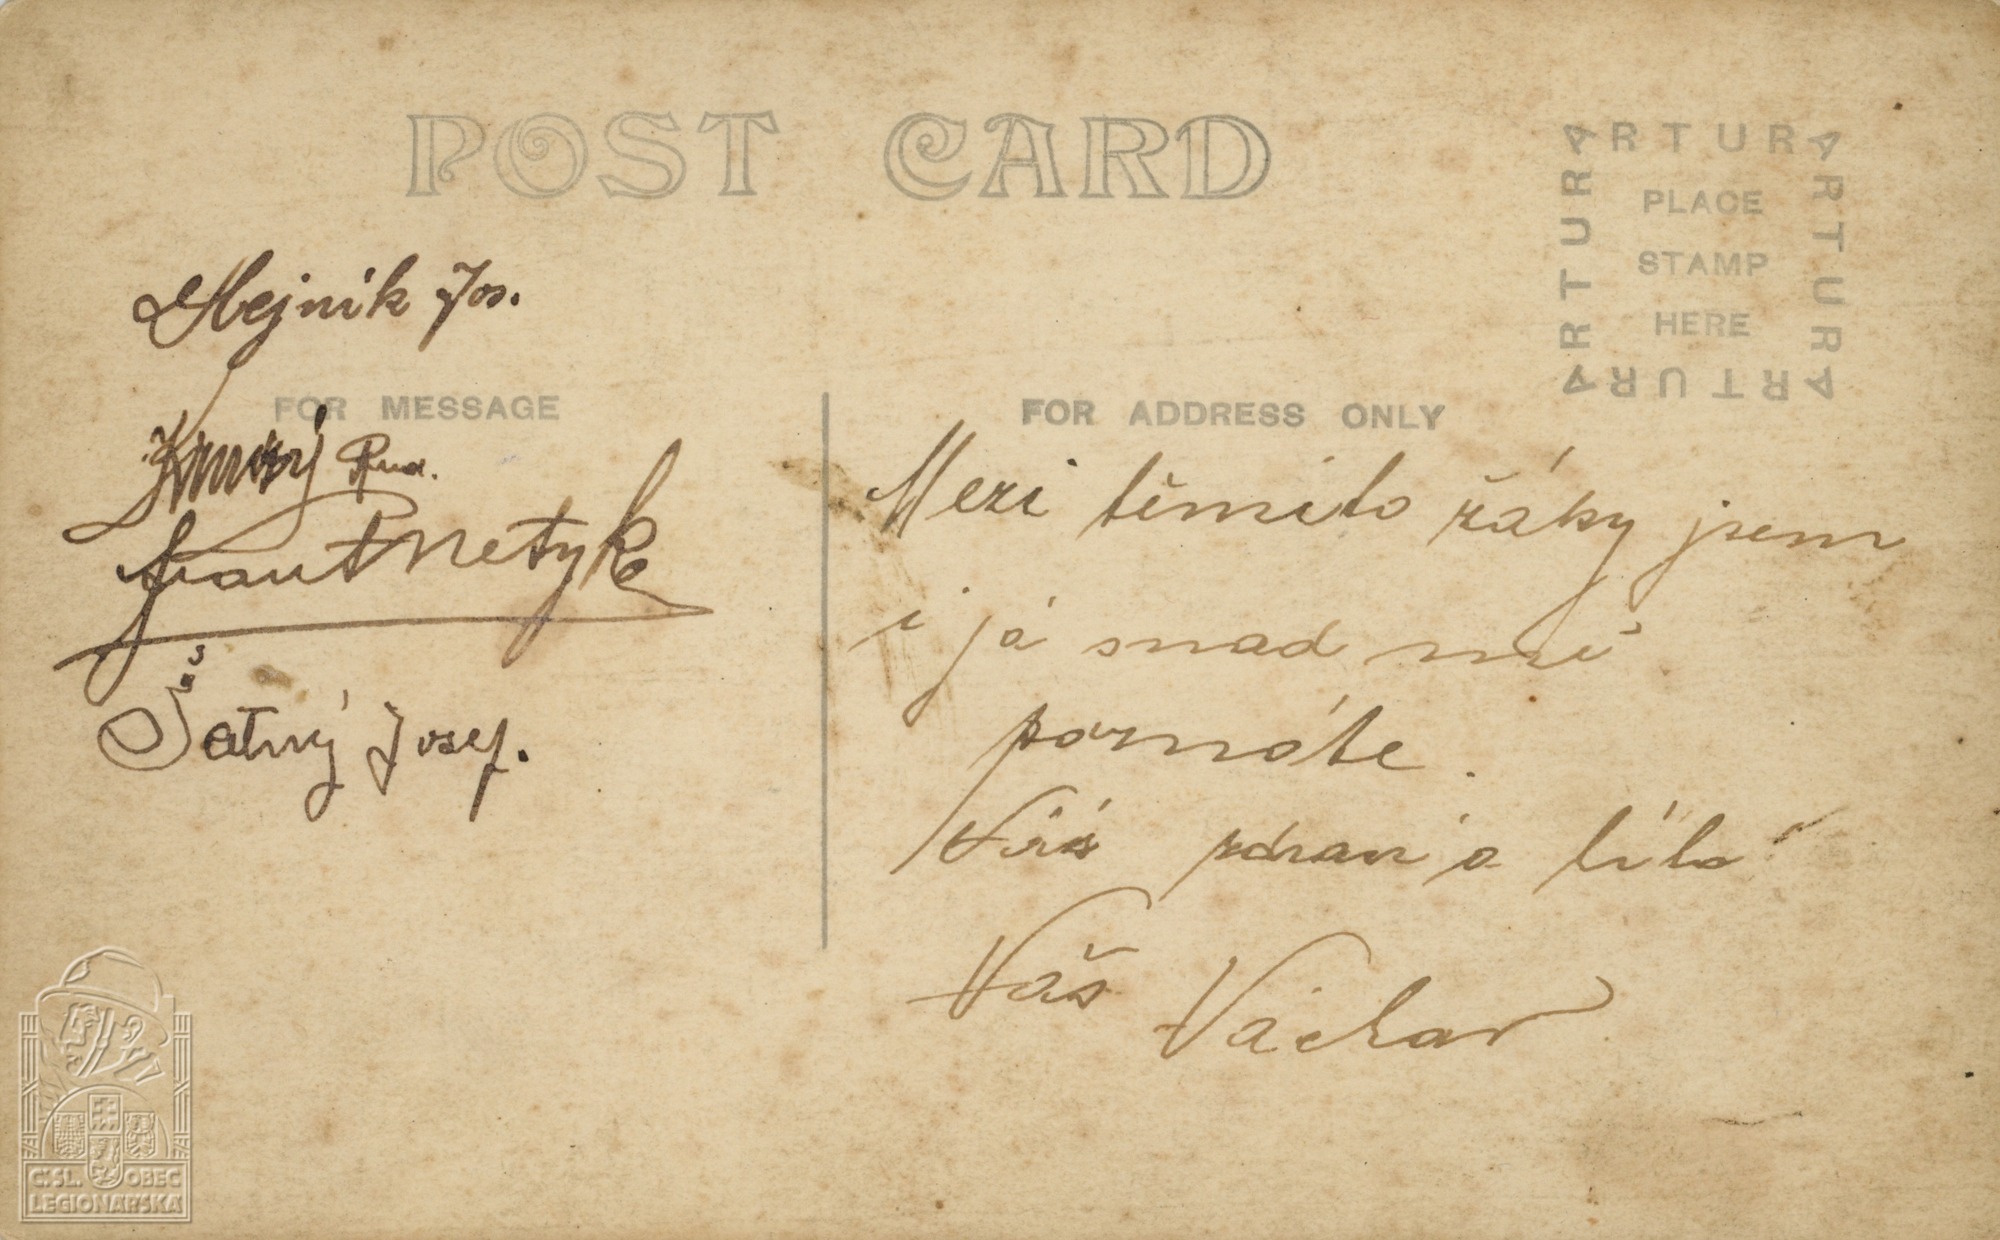 POST CARD
ARTURA
ARTURA
ARTURA
ARTURA
PLACE
STAMP
HERE
Jos.
FOR MESSAGE
Rud.
Frant Netyka
Šatný Josef.
FOR ADDRESS ONLY
Mezi těmito řáky jsem
i já snad mě
poznáte.
Vás zdraví a líbá
Váš Václav
Č.SL. OBEC
LEGIONÁŘSKÁ